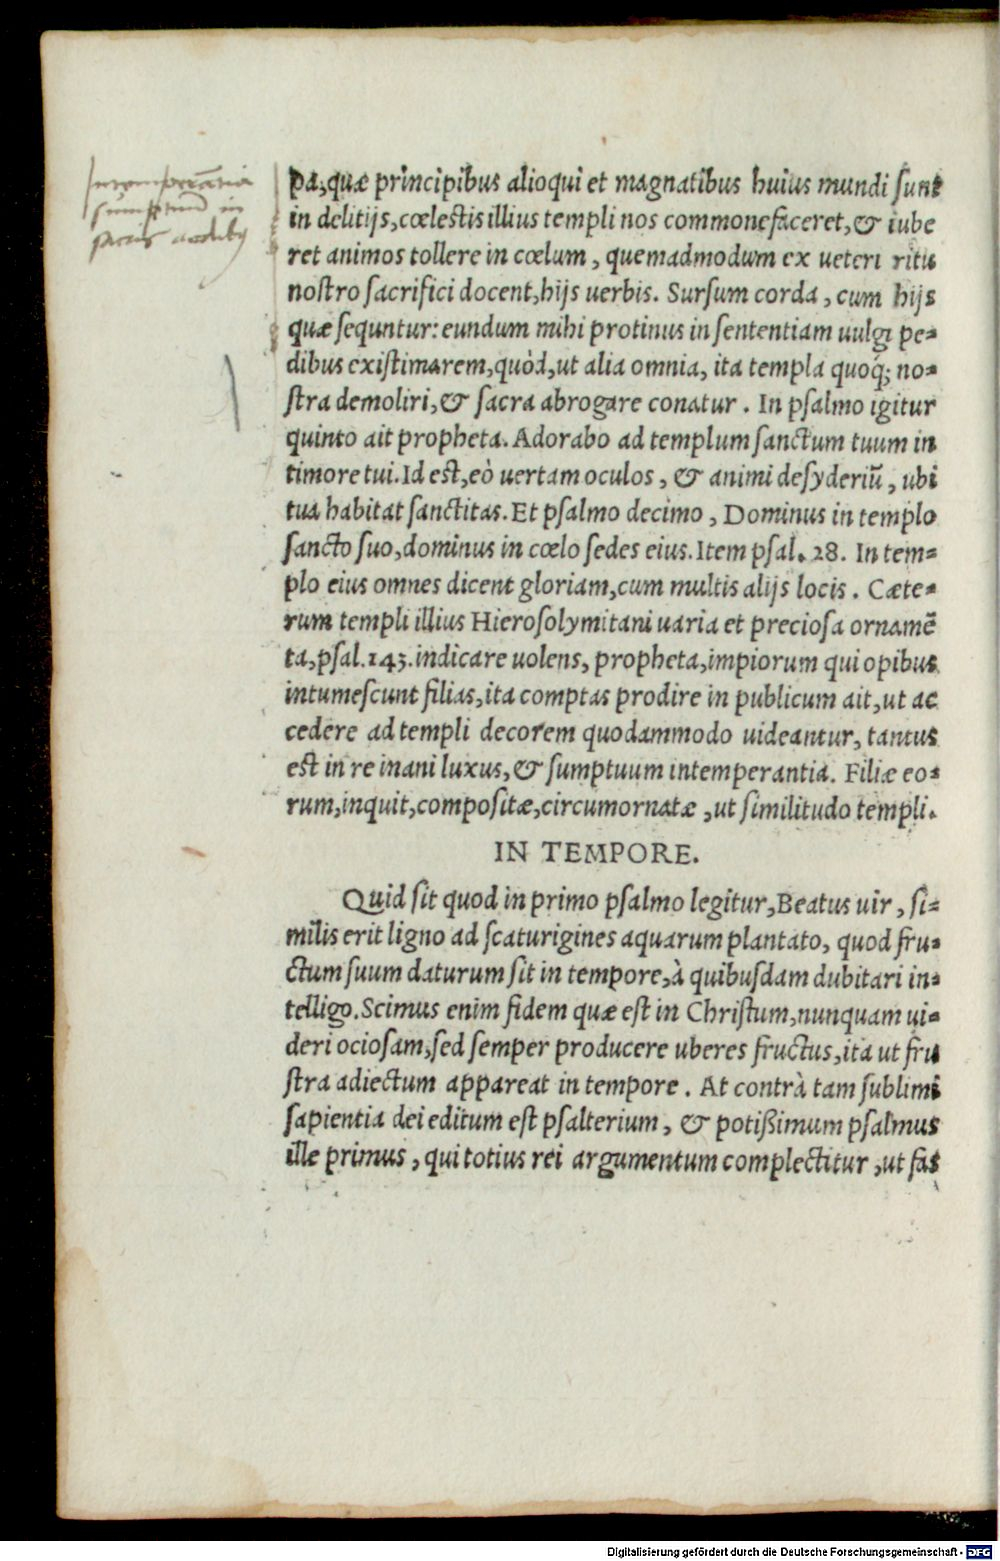 Intemperãtia
sumptuũ in
sacris aedibus
pa,quæ principibus alioqui et magnatibus huius mundi sunt
in delitijs,cœlestis illius templi nos commonefaceret,& iube
ret animos tollere in cœlum, quemadmodum ex ueteri ritu
nostro sacrifici docent,hijs uerbis. Sursum corda, cum hijs
quæ sequntur: eundum mihi protinus in sententiam uulgi pe-
dibus existimarem,quòd,ut alia omnia, ita templa quoq́; no-
stra demoliri,& sacra abrogare conatur. In psalmo igitur
quinto ait propheta. Adorabo ad templum sanctum tuum in
timore tui. Id est,eò uertam oculos, & animi desyderiũ, ubi
tua habitat sanctitas. Et psalmo decimo, Dominus in templo
sancto suo,dominus in cœlo sedes eius. Item psal. 28. In tem-
plo eius omnes dicent gloriam,cum multis alijs locis. Cæte-
rum templi illius Hierosolymitani uaria et preciosa ornamẽ
ta,psal.143.indicare uolens, propheta,impiorum qui opibus
intumescunt filias,ita comptas prodire in publicum ait,ut ac
cedere ad templi decorem quodammodo uideantur, tantus
est in re inani luxus,& sumptuum intemperantia. Filiæ eo-
rum,inquit,compositæ,circumornatæ,ut similitudo templi.
IN TEMPORE.
Quid sit quod in primo psalmo legitur,Beatus uir, si-
milis erit ligno ad scaturigines aquarum plantato, quod fru-
ctum suum daturum sit in tempore,à quibusdam dubitari in-
telligo. Scimus enim fidem quæ est in Christum,nunquam ui-
deri ociosam,sed semper producere uberes fructus,ita ut fru
stra adiectum appareat in tempore. At contrà tam sublimi
sapientia dei editum est psalterium, & potißimum psalmus
ille primus, qui totius rei argumentum complectitur,ut fas
Digitalisierung gefördert durch die Deutsche Forschungsgemeinschaft - DFG